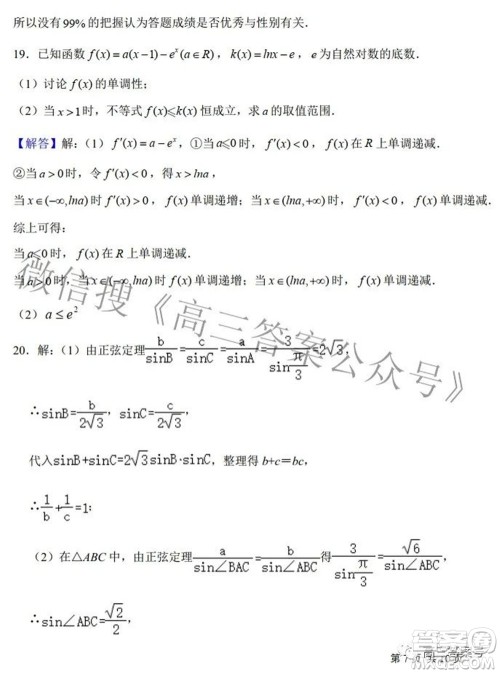 所以没有 99% 的把握认为答题成绩是否优秀与性别有关.
19．已知函数 f(x)=a(x−1)−eˣ(a∈R)，k(x)=lnx−e，e 为自然对数的底数.
（1）讨论 f(x) 的单调性；
（2）当 x>1 时，不等式 f(x)⩽k(x) 恒成立，求 a 的取值范围.
【解答】解：（1） f′(x)=a−eˣ，①当 a⩽0 时，f′(x)<0，f(x) 在 R 上单调递减.
②当 a>0 时，令 f′(x)<0，得 x>lna，
当 x∈(−∞,lna) 时 f′(x)>0，f(x) 单调递增；当 x∈(lna,+∞) 时，f′(x)<0，f(x) 单调递减.
综上可得：
当 a⩽0 时，f(x) 在 R 上单调递减.
当 a>0 时，当 x∈(−∞,lna) 时 f(x) 单调递增；当 x∈(lna,+∞) 时，f(x) 单调递减.
（2）a≤e²
20．解：（1）由正弦定理 b/sinB=c/sinC=a/sinA=3/sin(π/3)=2√3，
∴sinB=b/2√3，sinC=c/2√3，
代入sinB+sinC=2√3sinB·sinC，整理得 b+c=bc，
∴1/b+1/c=1；
（2）在△ABC 中，由正弦定理 a/sin∠BAC=b/sin∠ABC 得 3/sin(π/3)=√6/sin∠ABC，
∴sin∠ABC=√2/2，
微信搜《高三答案公众号》